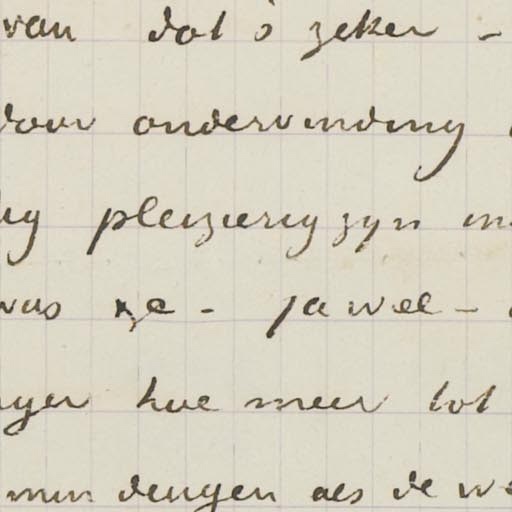 van dat's zeker -
door ondervinding
pleizierig zyn
was ze - jawel -
hoe meer tot
min deugen als de